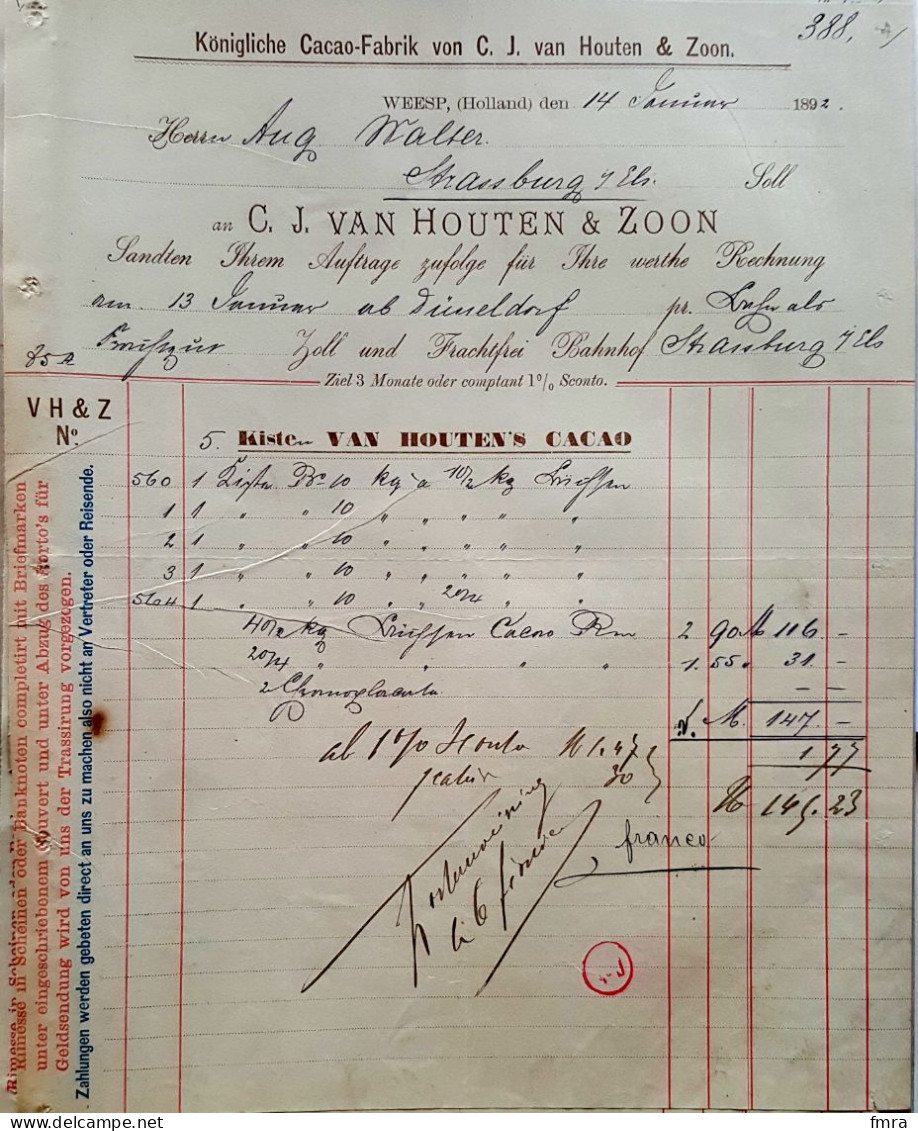 388.
Königliche Cacao-Fabrik von C. J. van Houten & Zoon.
WEESP, (Holland) den 14 Januar 1892.
Herrn Aug Walter.
Strassburg i/Els. Soll
an C. J. VAN HOUTEN & ZOON
Sandten Ihrem Auftrage zufolge für Ihre werthe Rechnung
am 13 Januar ab Düsseldorf pr. Bahn als
Zoll und Frachtfrei Bahnhof Strassburg i/Els
Ziel 3 Monate oder comptant 1% Sconto.
V H & Z
No.
5. Kisten VAN HOUTEN'S CACAO
560 1 Kiste Bo 10 kg a 10/2 kg Büchsen
1 1 " " 10 " " " " "
2 1 " " 10 " " " " "
3 1 " " 10 " " " " "
564 1 " " 10 " " 20/4 " "
40/2 kg Büchsen Cacao Rm 2 90 M 116 -
20/4 " " " " 1.55 " 31. -
2 - -
M. 147. -
ab 1% Sconto M 1.47
30
1.77
M 145.23
franco
Rimesse in Scheinen oder Banknoten completirt mit Briefmarken
unter eingeschriebenem Couvert und unter Abzug des Porto's für
Geldsendung wird von uns der Trassirung vorgezogen.
Zahlungen werden gebeten direct an uns zu machen also nicht an Vertreter oder Reisende.
fmra